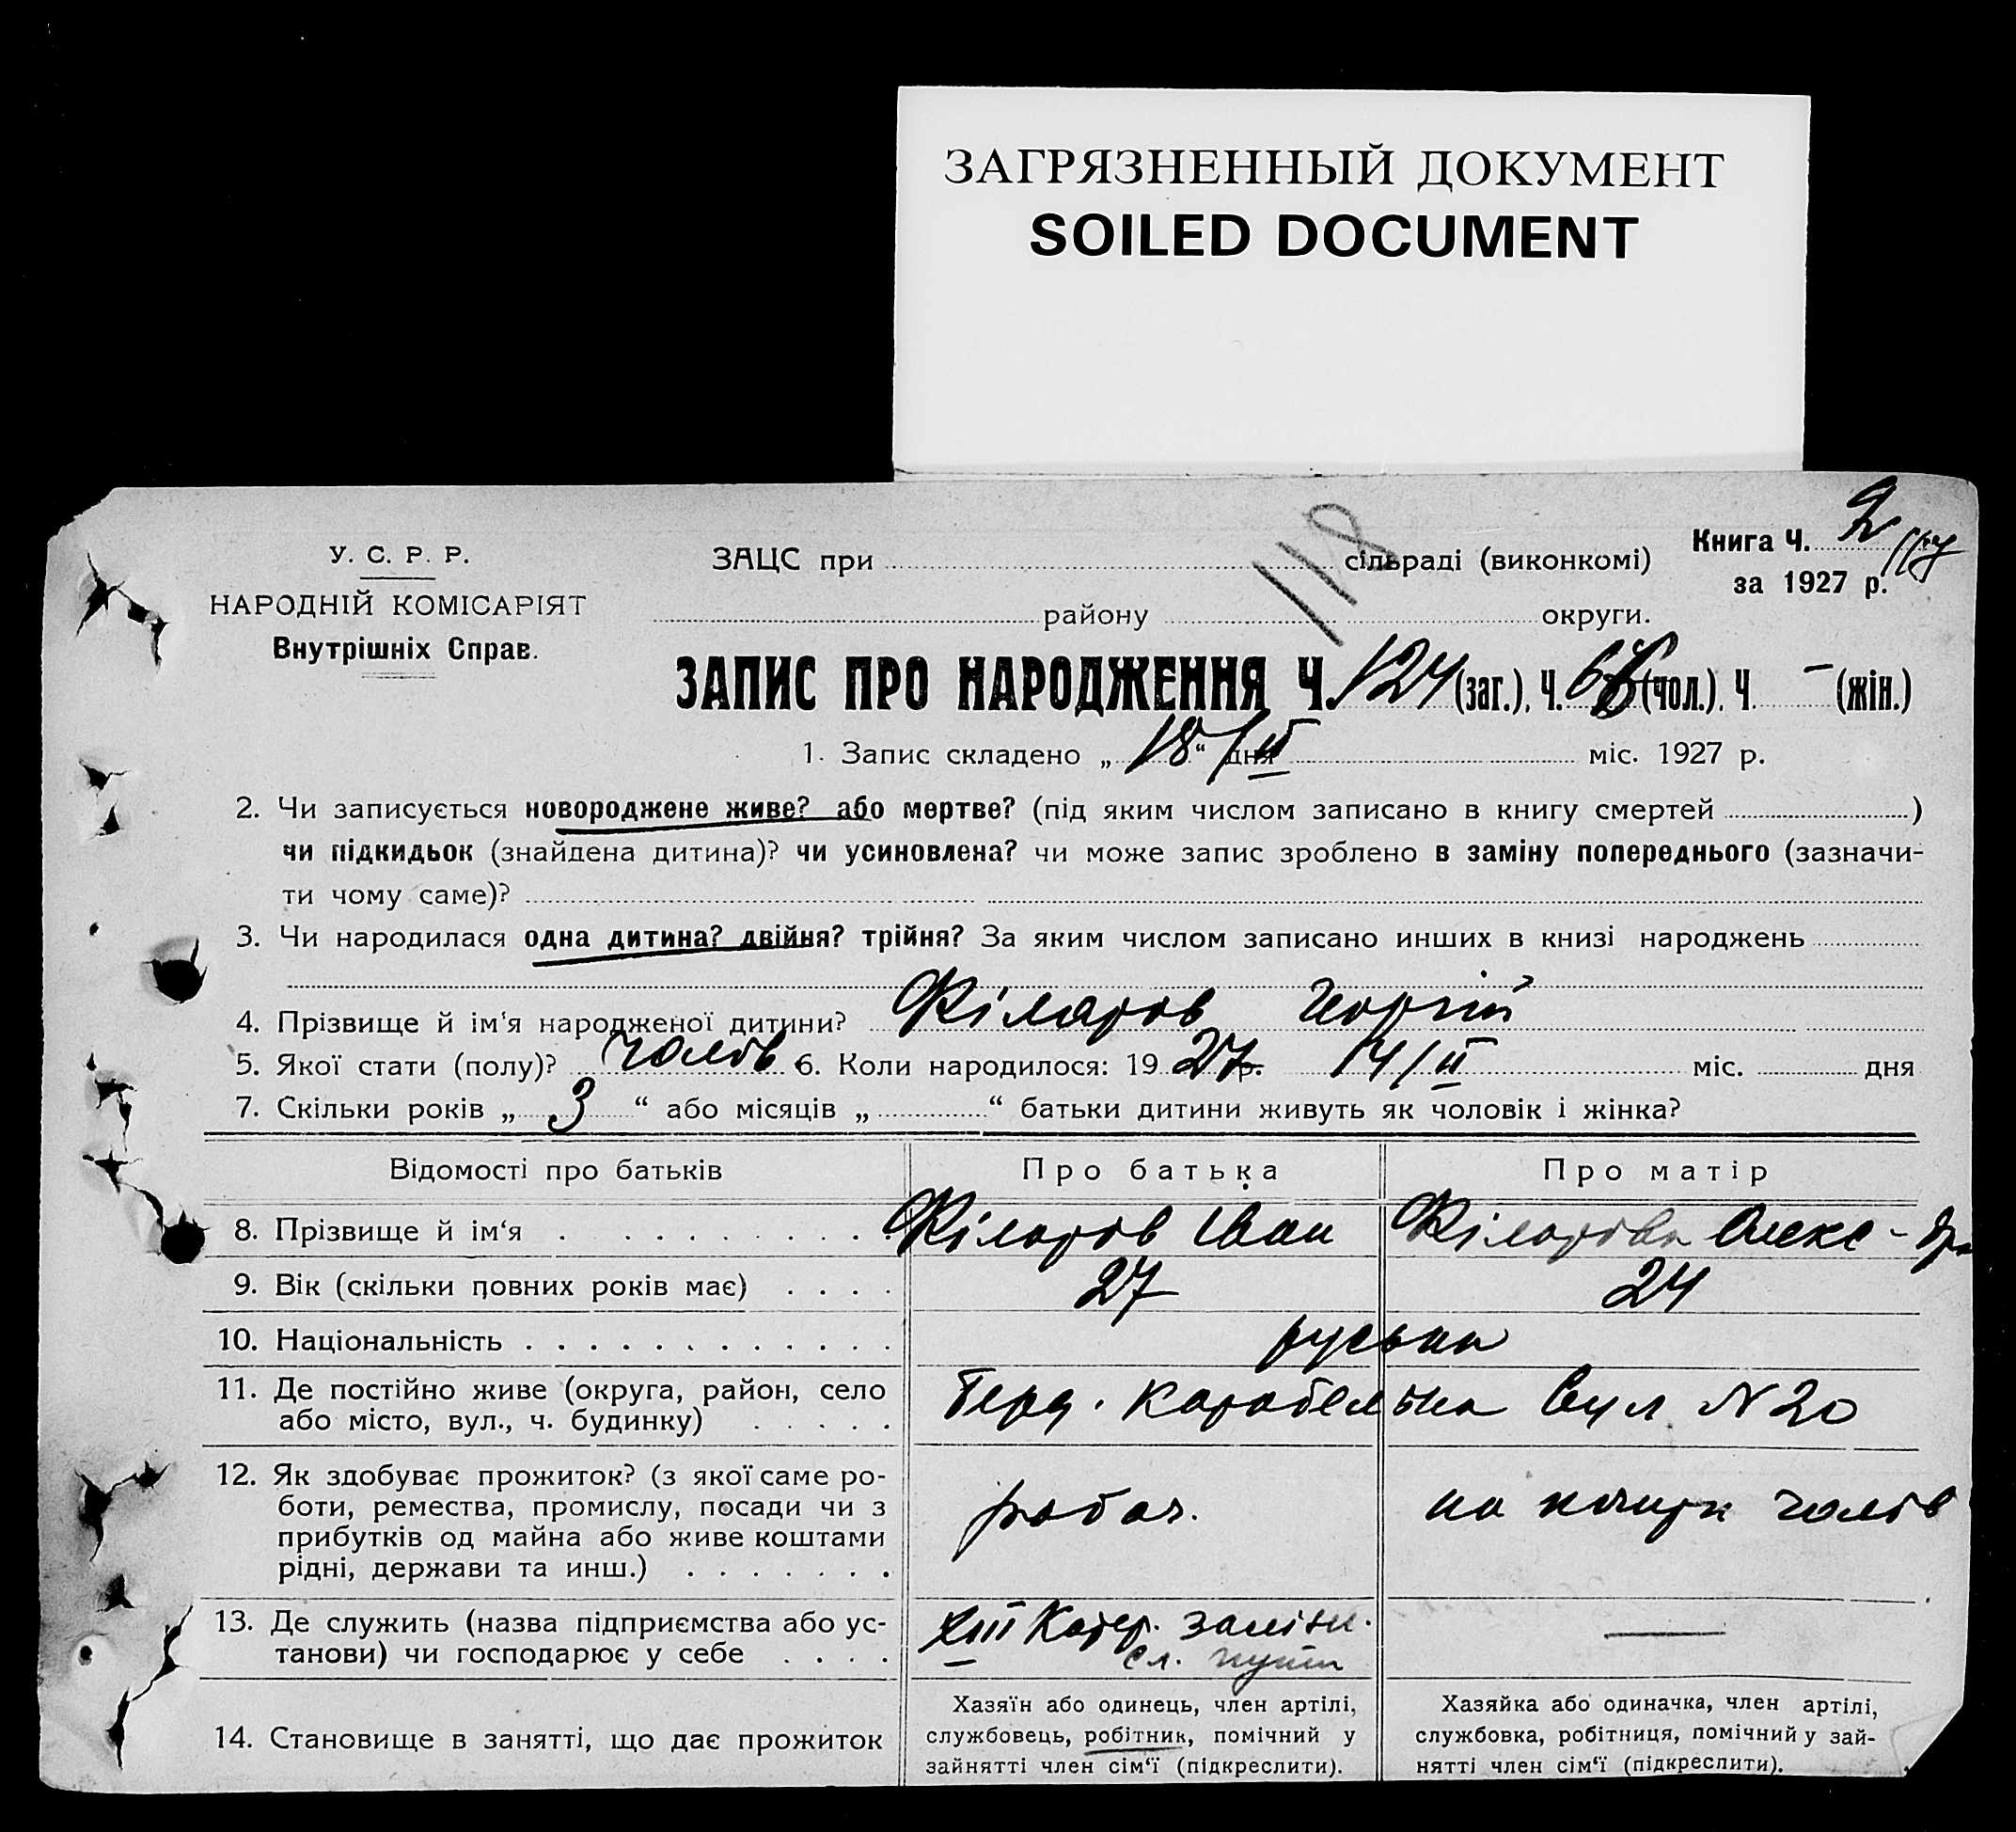 ЗАГРЯЗНЕННЫЙ ДОКУМЕНТ
SOILED DOCUMENT
118
У. С. Р. Р.
НАРОДНІЙ КОМІСАРІЯТ
Внутрішніх Справ.
ЗАЦС при сільраді (виконкомі)
Книга Ч. 2
за 1927 р.
району округи.
ЗАПИС ПРО НАРОДЖЕННЯ Ч. 124 (заг.), Ч. (чол.), Ч. – (жін.)
1. Запис складено „18“ дня /II міс. 1927 р.
2. Чи записується новороджене живе? або мертве? (під яким числом записано в книгу смертей )
чи підкидьок (знайдена дитина)? чи усиновлена? чи може запис зроблено в заміну попереднього (зазначи-
ти чому саме)?
3. Чи народилася одна дитина? двійня? трійня? За яким числом записано инших в книзі народжень
4. Прізвище й ім'я народженої дитини? Філаров Георгій
5. Якої стати (полу)? чолов 6. Коли народилося: 1927 р. 14/II міс. дня
7. Скільки років „ 3 “ або місяців „ “ батьки дитини живуть як чоловік і жінка?
Відомості про батьків Про батька Про матір
8. Прізвище й ім‘я . . . . . . . . . . Філаров Іван Філарова Олекс-дра
9. Вік (скільки повних років має) . . . . 27 24
10. Національність . . . . . . . . . . . . . руська
11. Де постійно живе (округа, район, село
або місто, вул., ч. будинку) . . . . . Берд. Карабельна вул N 20
12. Як здобуває прожиток? (з якої саме ро-
боти, ремества, промислу, посади чи з
прибутків од майна або живе коштами
рідні, держави та инш.) . . . . . . .
робоч. на кошти чолов
13. Де служить (назва підприємства або ус-
танови) чи господарює у себе . . . .
XIII Катер. залізн.
сл. пути
14. Становище в занятті, що дає прожиток
Хазяїн або одинець, член артілі,
службовець, робітник, помічний у
зайнятті член сім‘ї (підкреслити).
Хазяйка або одиначка, член артілі,
службовка, робітниця, помічний у зай-
нятті член сім‘ї (підкреслити).